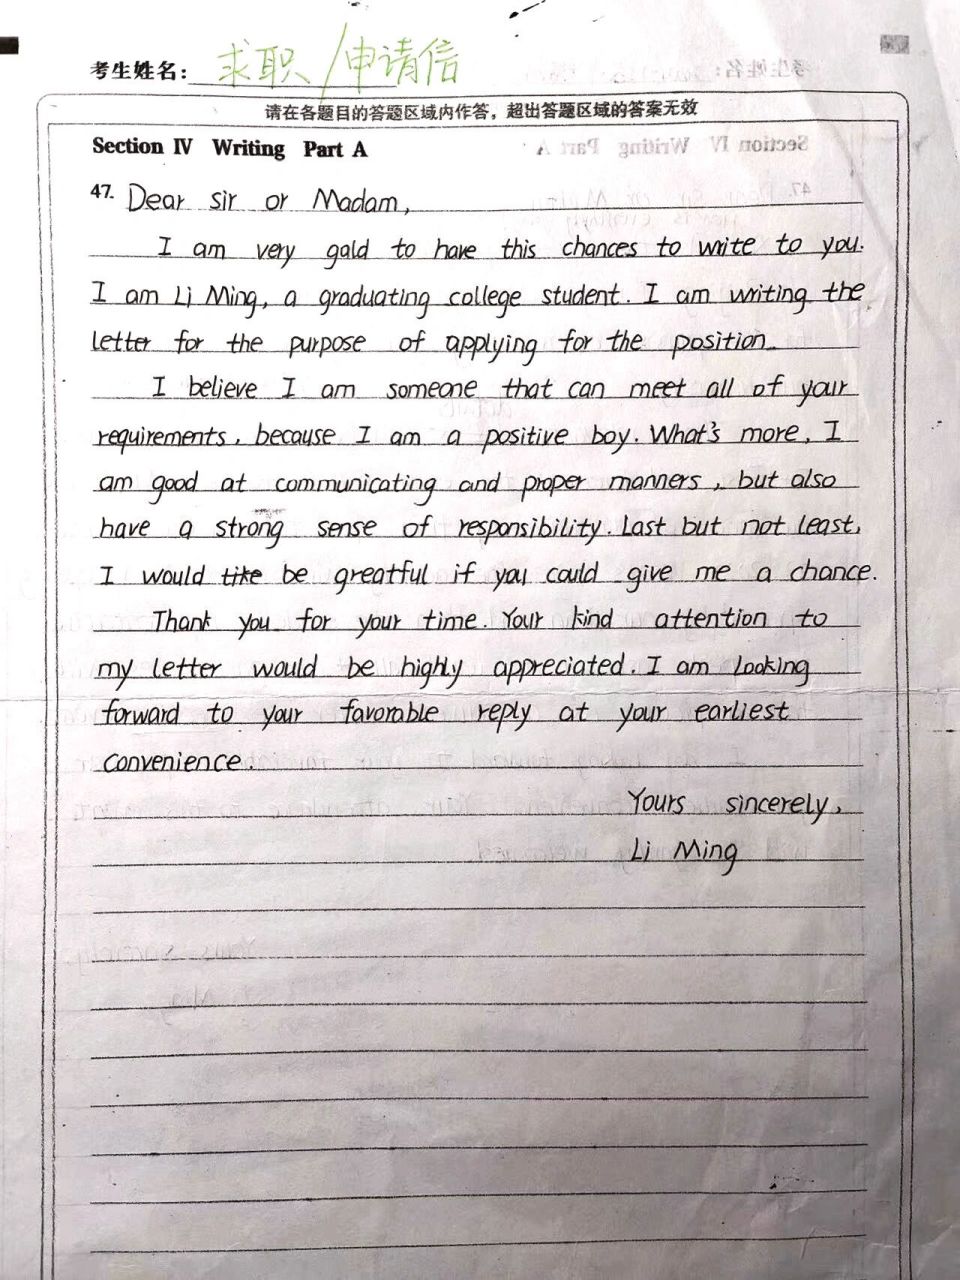 求职/申请信
考生姓名：
请在各题目的答题区域内作答，超出答题区域的答案无效
Section IV Writing Part A
47. Dear sir or Madam,
I am very gald to have this chances to write to you.
I am Li Ming, a graduating college student. I am writing the
letter for the purpose of applying for the position.
I believe I am someone that can meet all of your
requirements, because I am a positive boy. What's more, I
am good at communicating and proper manners, but also
have a strong sense of responsibility. Last but not least,
I would like be greatful if you could give me a chance.
Thank you for your time. Your kind attention to
my letter would be highly appreciated. I am looking
forward to your favorable reply at your earliest
convenience.
Yours sincerely,
Li Ming